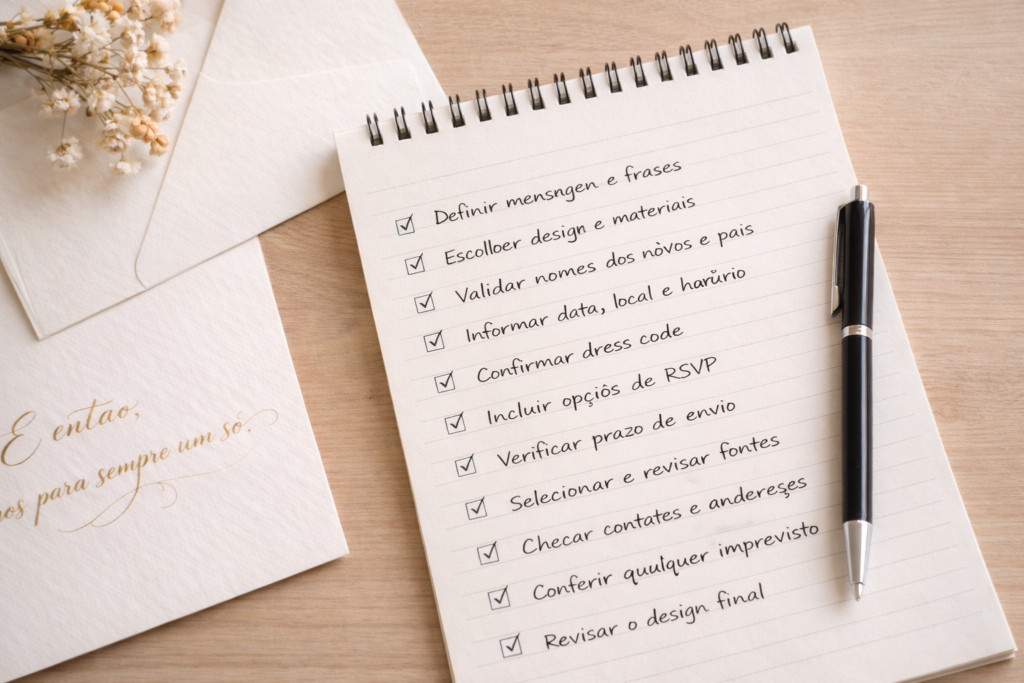 Definir mensngen e frases
Escolloer design e materiais
Validar nomes dos nòvos e pais
Informar data, local e harůrio
Confirmar dress code
Incluir opçiõs de RSVP
Verificar prazo de envio
Selecionar e revisar fontes
Checar contates e andereşes
Conferir quulquer imprevisto
Revisar o design final
E entao,
para sempre um só.